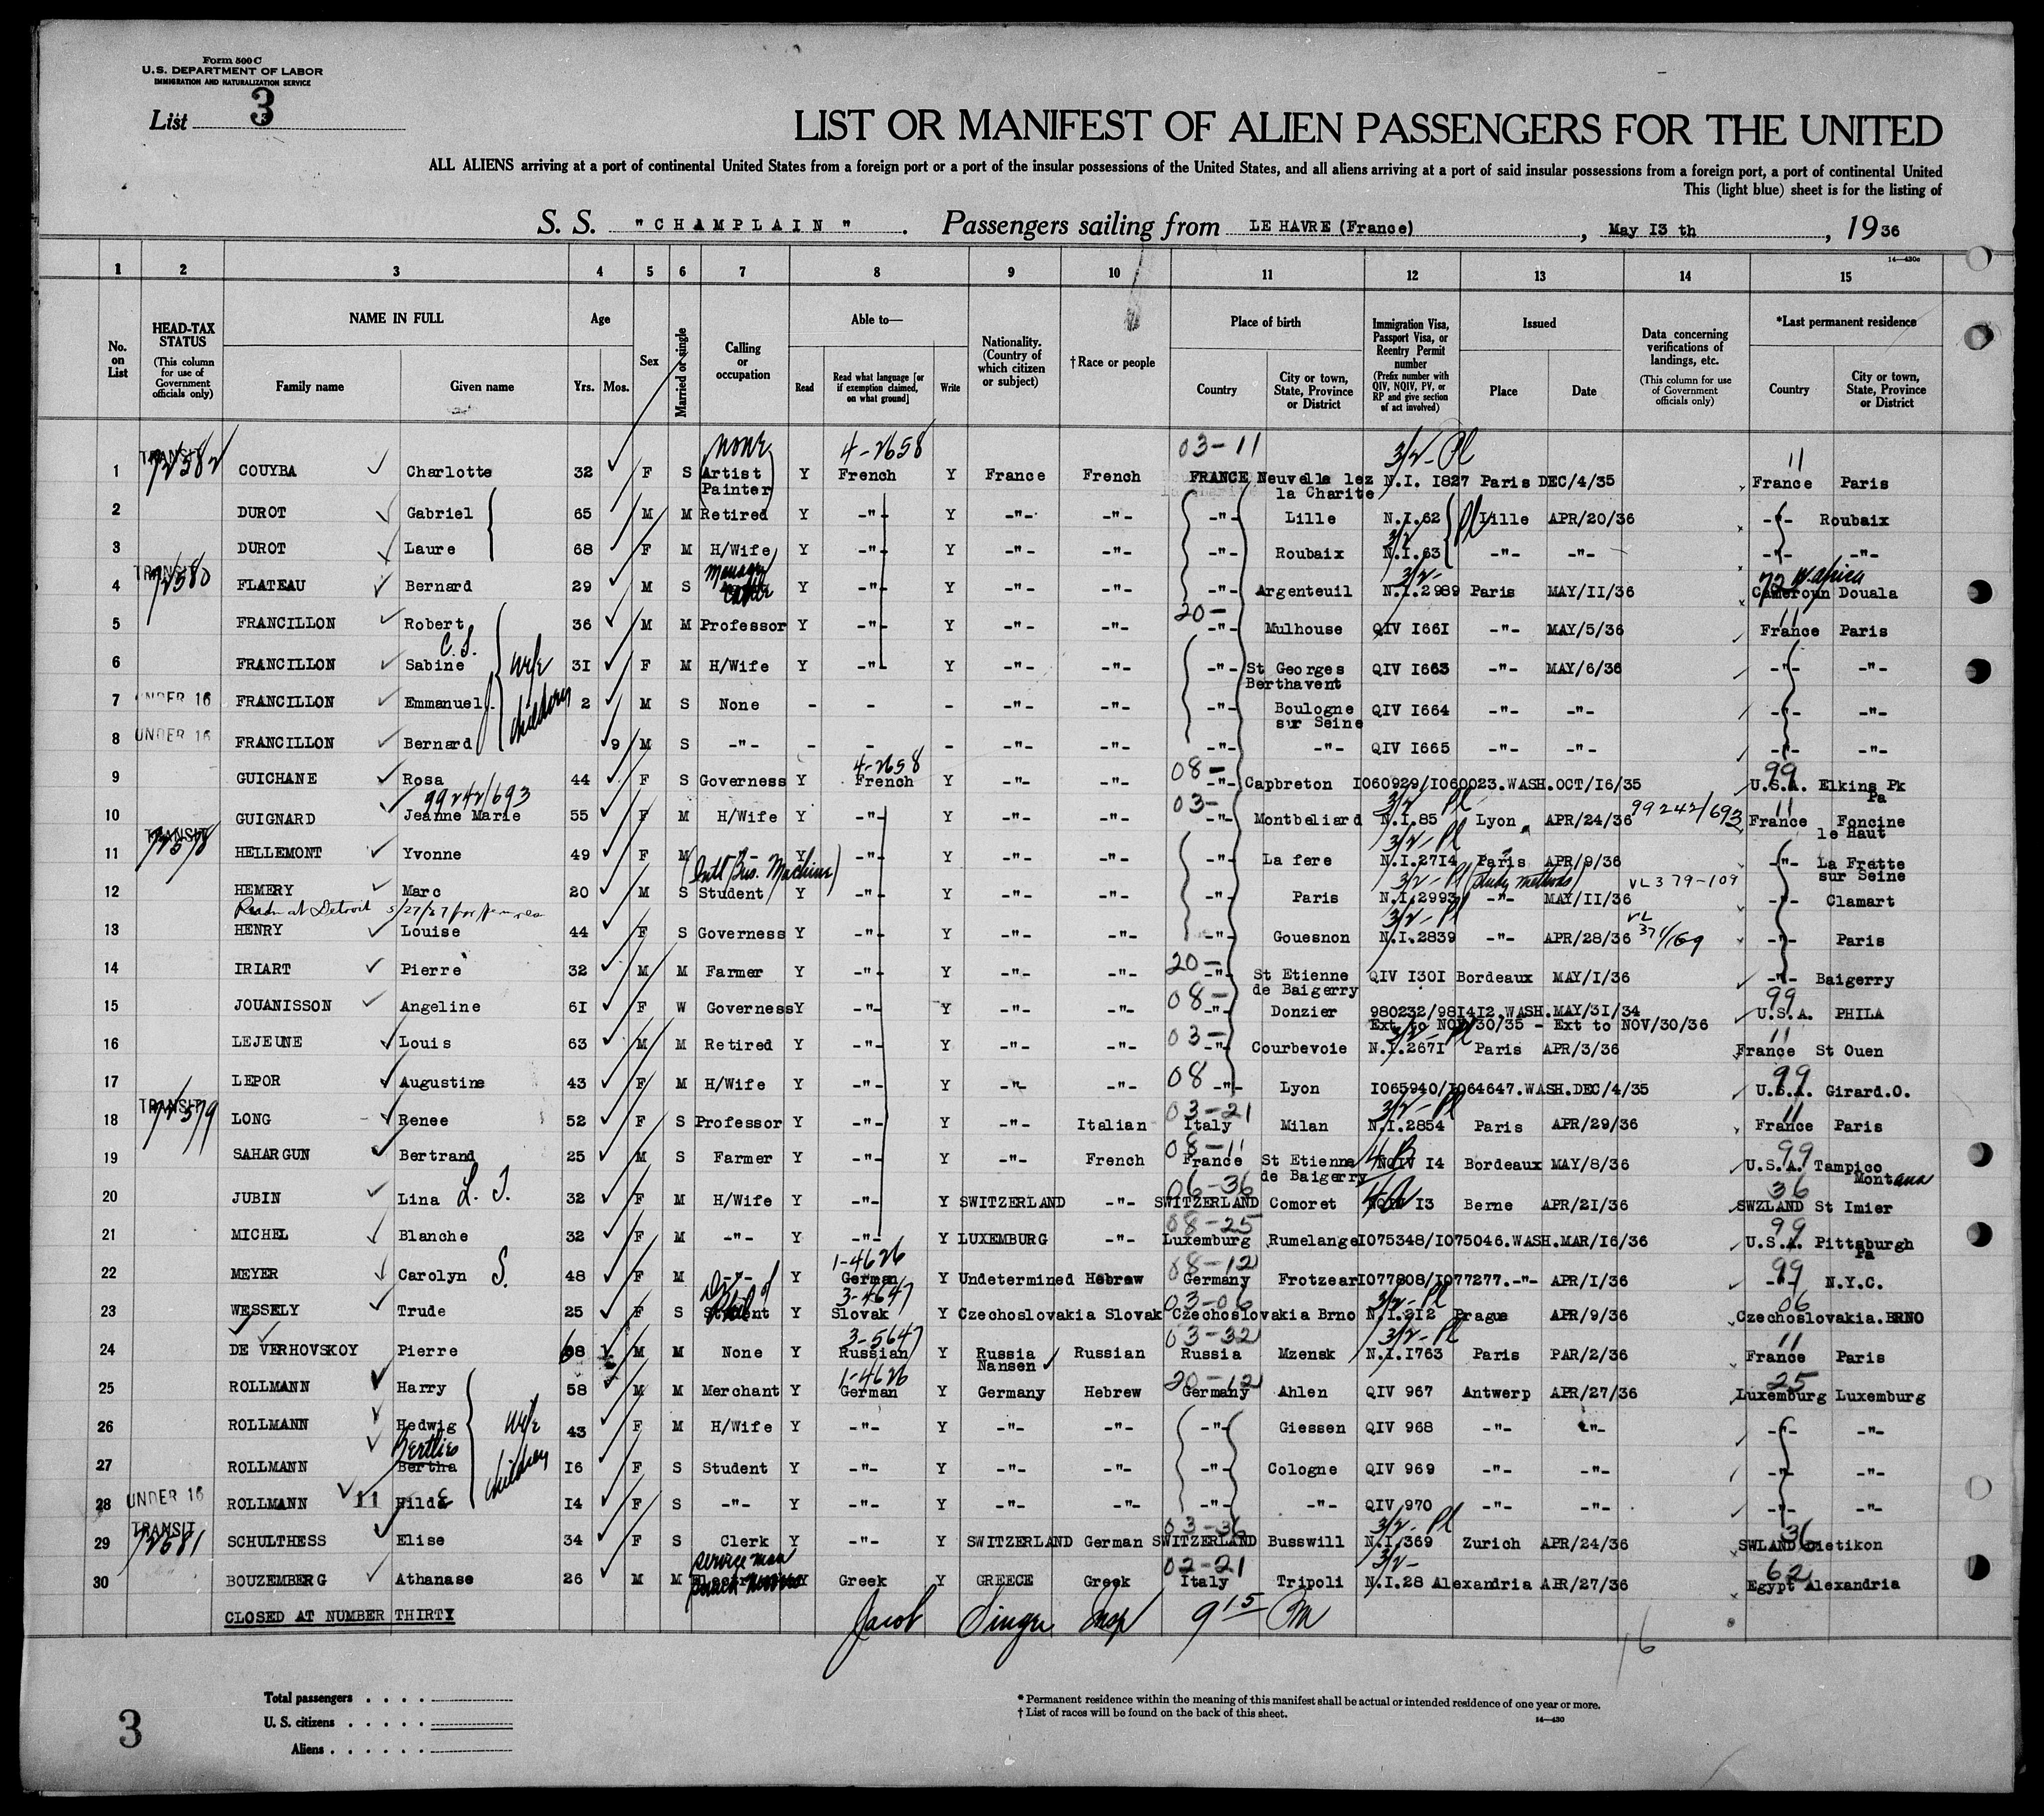 Form 500 C
U.S. DEPARTMENT OF LABOR
IMMIGRATION AND NATURALIZATION SERVICE
List 3
LIST OR MANIFEST OF ALIEN PASSENGERS FOR THE UNITED
ALL ALIENS arriving at a port of continental United States from a foreign port or a port of the insular possessions of the United States, and all aliens arriving at a port of said insular possessions from a foreign port, a port of continental United
This (light blue) sheet is for the listing of
S. S. "CHAMPLAIN". Passengers sailing from LE HAVRE (France), May 13 th, 1936
14—430c
1 2 3 4 5 6 7 8 9 10 11 12 13 14 15
No. on List
HEAD-TAX STATUS (This column for use of Government officials only)
NAME IN FULL Family name Given name
Age Yrs. Mos.
Sex
Married or single
Calling or occupation
Able to— Read Read what language [or if exemption claimed, on what ground] Write
Nationality. (Country of which citizen or subject)
† Race or people
Place of birth Country City or town, State, Province or District
Immigration Visa, Passport Visa, or Reentry Permit number (Prefix number with QIV, NQIV, PV, or RP and give section of act involved)
Issued Place Date
Data concerning verifications of landings, etc. (This column for use of Government officials only)
*Last permanent residence Country City or town, State, Province or District
TRANSIT 72582 none 4-2658 03-11 3/2- Pl 11
1 COUYBA Charlotte 32 F S Artist Painter Y French Y France French FRANCE Neuvelle lez la Charite N.I. 1827 Paris DEC/4/35 France Paris
2 DUROT Gabriel 65 M M Retired Y -"- Y -"- -"- -"- Lille N.I.62 Pl Lille APR/20/36 -"- Roubaix
3 DUROT Laure 68 F M H/Wife Y -"- Y -"- -"- -"- Roubaix 3/2 N.I.63 -"- -"- -"- -"-
TRANSIT 72580 Manager 3/2- 72 W. Africa
4 FLATEAU Bernard 29 M S Y -"- Y -"- -"- -"- Argenteuil N.I.2989 Paris MAY/11/36 Cameroun Douala
20- 11
5 FRANCILLON Robert 36 M M Professor Y -"- Y -"- -"- -"- Mulhouse QIV 1661 -"- MAY/5/36 France Paris
C.S. wife
6 FRANCILLON Sabine 31 F M H/Wife Y -"- Y -"- -"- -"- St Georges Berthavent QIV 1663 -"- MAY/6/36 -"- -"-
7 UNDER 16 FRANCILLON Emmanuel J. children 2 M S None - - - -"- -"- -"- Boulogne sur Seine QIV 1664 -"- -"- -"- -"-
8 UNDER 16 FRANCILLON Bernard 9 M S -"- - - - -"- -"- -"- -"- QIV 1665 -"- -"- -"- -"-
4-2658 08- 99
9 GUICHANE Rosa 44 F S Governess Y French Y -"- -"- -"- Capbreton 1060929/1060023.WASH.OCT/16/35 U.S.A. Elkins Pk Pa
99242/693 03- 3/2 Pl 99242/693 11
10 GUIGNARD Jeanne Marie 55 F M H/Wife Y -"- Y -"- -"- -"- Montbeliard N.I.85 Lyon APR/24/36 France Foncine le Haut
TRANSIT 72578 3/2- Pl
11 HELLEMONT Yvonne 49 F M -"- Y -"- Y -"- -"- -"- La fere N.I.2714 Paris APR/9/36 -"- La Frette sur Seine
(Intl Bus. Machine) 3/2- Pl (study methods) VL 379-109
12 HEMERY Marc 20 M S Student Y -"- Y -"- -"- -"- Paris N.I.2993 -"- MAY/11/36 -"- Clamart
at Detroit 3/2- Pl VL 371/169
13 HENRY Louise 44 F S Governess Y -"- Y -"- -"- -"- Gouesnon N.I.2839 -"- APR/28/36 -"- Paris
20-
14 IRIART Pierre 32 M M Farmer Y -"- Y -"- -"- -"- St Etienne de Baigerry QIV 1301 Bordeaux MAY/1/36 -"- Baigerry
08- 99
15 JOUANISSON Angeline 61 F W Governess Y -"- Y -"- -"- -"- Donzier 980232/981412.WASH.MAY/31/34 Ext to NOV/30/35 - Ext to NOV/30/36 U.S.A. PHILA
03- 3/2- Pl 11
16 LEJEUNE Louis 63 M M Retired Y -"- Y -"- -"- -"- Courbevoie N.I.2671 Paris APR/3/36 France St Ouen
08 99
17 LEPOR Augustine 43 F M H/Wife Y -"- Y -"- -"- -"- Lyon 1065940/1064647.WASH.DEC/4/35 U.S.A. Girard.O.
TRANSIT 72579 03-21 3/2- Pl 11
18 LONG Renee 52 F S Professor Y -"- Y -"- Italian Italy Milan N.I.2854 Paris APR/29/36 France Paris
08-11 4 B 99
19 SAHARGUN Bertrand 25 M S Farmer Y -"- Y -"- French France St Etienne de Baigerry NQIV 14 Bordeaux MAY/8/36 U.S.A. Tampico Montana
06-36 36
20 JUBIN Lina L. J. 32 F M H/Wife Y -"- Y SWITZERLAND -"- SWITZERLAND Comoret NQIV 13 Berne APR/21/36 SWZLAND St Imier
08-25 99
21 MICHEL Blanche 32 F M -"- Y -"- Y LUXEMBURG -"- Luxemburg Rumelange 1075348/1075046.WASH.MAR/16/36 U.S.A. Pittsburgh Pa
1-4626 08-12 99
22 MEYER Carolyn S. 48 F M -"- Y German Y Undetermined Hebrew Germany Frotzear 1077808/1077277.-"- APR/1/36 -"- N.Y.C.
Dr of Phil 3-4647 03-06 3/2- Pl 06
23 WESSELY Trude 25 F S Student Y Slovak Y Czechoslovakia Slovak Czechoslovakia Brno N.I.212 Prague APR/9/36 Czechoslovakia.BRNO
3-5647 03-32 3/2- Pl 11
24 DE VERHOVSKOY Pierre 68 M M None Y Russian Y Russia Nansen Russian Russia Mzensk N.I.1763 Paris PAR/2/36 France Paris
1-4626 20-12 25
25 ROLLMANN Harry 58 M M Merchant Y German Y Germany Hebrew Germany Ahlen QIV 967 Antwerp APR/27/36 Luxemburg Luxemburg
26 ROLLMANN Hedwig wife 43 F M H/Wife Y -"- Y -"- -"- -"- Giessen QIV 968 -"- -"- -"- -"-
Bertlies
27 ROLLMANN Bertha children 16 F S Student Y -"- Y -"- -"- -"- Cologne QIV 969 -"- -"- -"- -"-
28 UNDER 16 ROLLMANN 11 Hilde 14 F S -"- Y -"- Y -"- -"- -"- -"- QIV 970 -"- -"- -"- -"-
TRANSIT 72681 03-36 3/2- Pl 36
29 SCHULTHESS Elise 34 F S Clerk Y -"- Y SWITZERLAND German SWITZERLAND Busswill N.I.369 Zurich APR/24/36 SWLAND Dietikon
service man 02-21 3/2- 62
30 BOUZEMBERG Athanase 26 M M Y Greek Y GREECE Greek Italy Tripoli N.I.28 Alexandria APR/27/36 Egypt Alexandria
CLOSED AT NUMBER THIRTY
Jacob Singer Insp 9 15 PM
16
Total passengers . . . .
U. S. citizens . . . . .
Aliens . . . . . .
3
* Permanent residence within the meaning of this manifest shall be actual or intended residence of one year or more.
† List of races will be found on the back of this sheet.
14—430